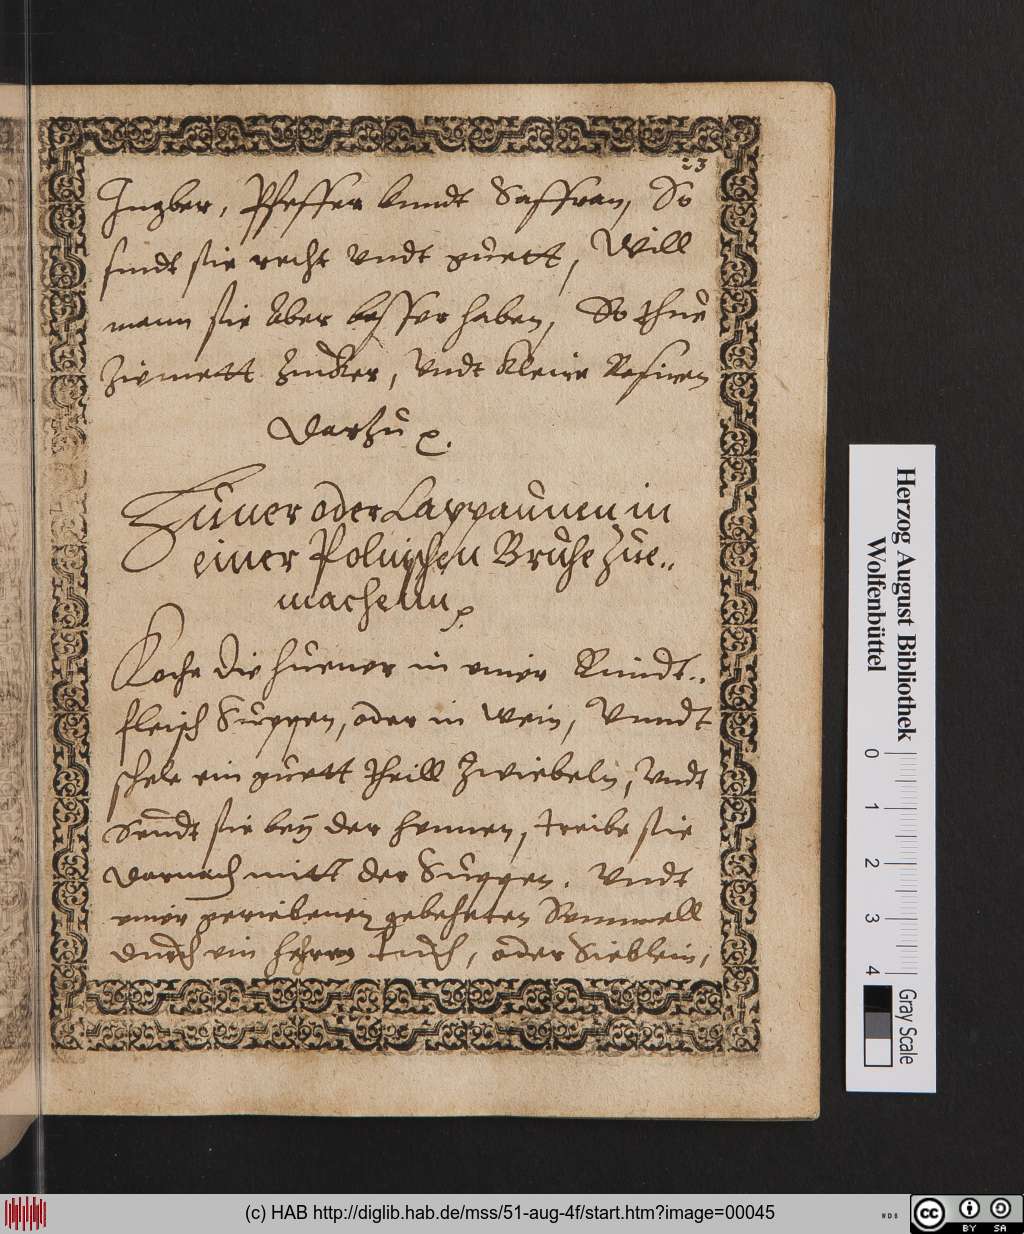 23
Ingber, Pfeffer vnndt Saffran, So
sindt sie recht vndt guett, Will
mann sie Aber besser haben, So thue
Zimmett Zucker, Vndt kleine Rosinen
Darzu
Hüner oder Cappaunen in
einer Polnischen Bruhe Zue..
machenn
Koche die huener in einer Rindt..
fleisch Suppen, oder in Wein, Vnndt
schele ein guett theill Zwiebeln, Vndt
Seudt sie bey der hennen, treibe sie
darnach mitt der Suppen. Vndt
einer geriebenen gebeheten Semmell
durch ein tuch, oder Sieblein,
Herzog August Bibliothek
Wolfenbüttel
0 1 2 3 4
Gray Scale
HAB
(c) HAB http://diglib.hab.de/mss/51-aug-4f/start.htm?image=00045
WDB
cc BY SA